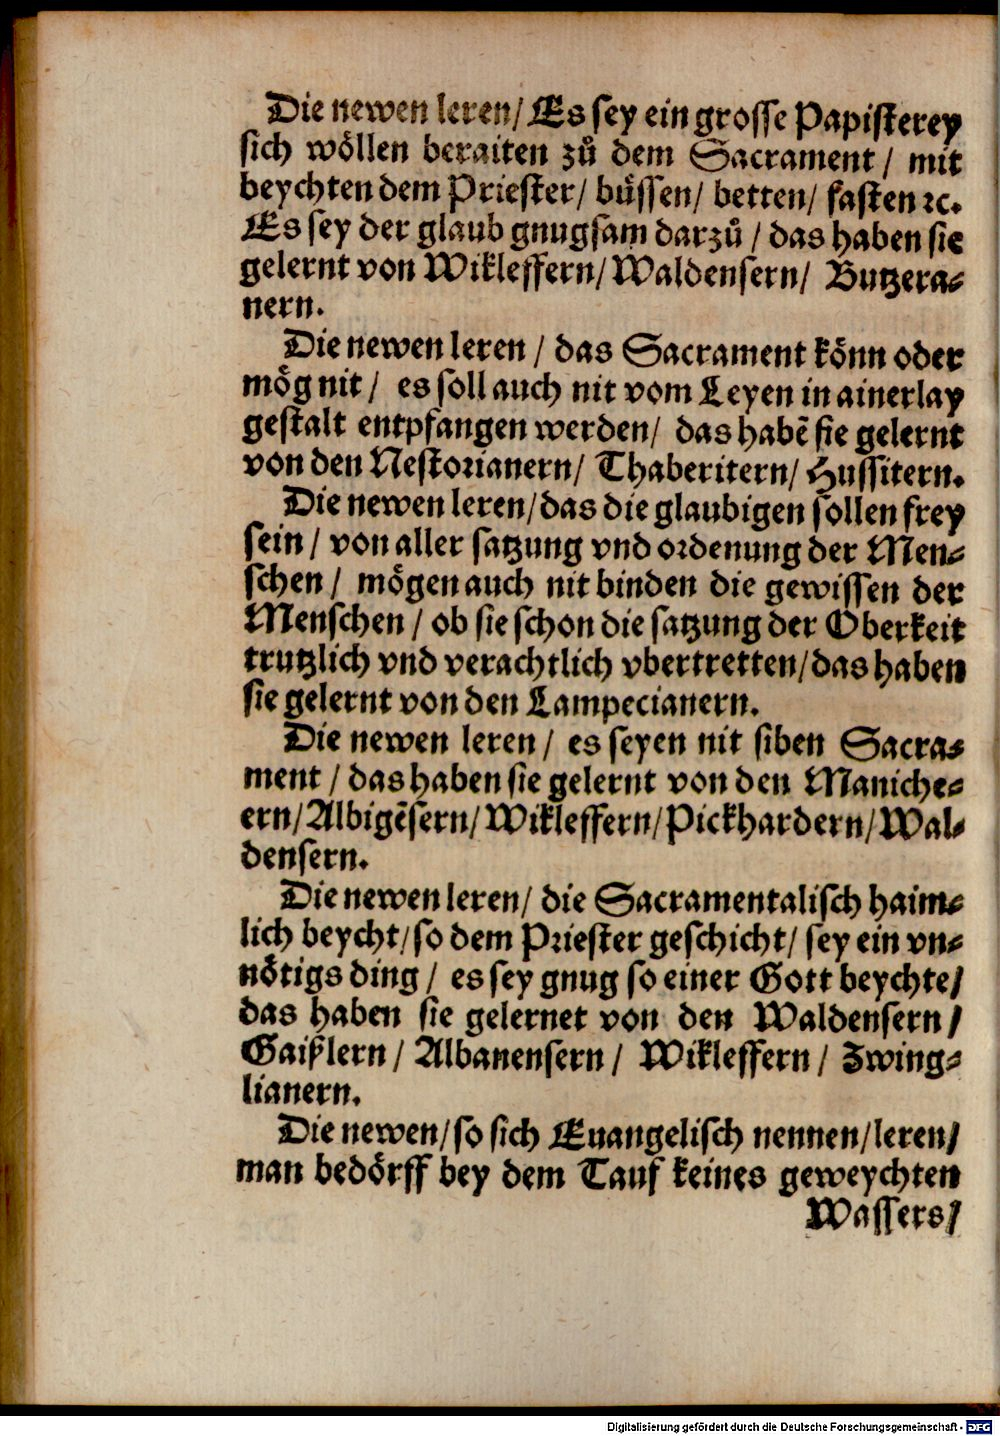 Die newen leren/ Es sey ein grosse Papisterey
sich wöllen beraiten zů dem Sacrament/ mit
beychten dem Priester/ bůssen/ betten/ fasten ꝛc.
Es sey der glaub gnugsam darzů/ das haben sie
gelernt von Wikleffern/ Waldensern/ Butzera⸗
nern.
Die newen leren/ das Sacrament könn oder
mög nit/ es soll auch nit vom Leyen in ainerlay
gestalt entpfangen werden/ das habẽ sie gelernt
von den Nestorianern/ Thaberitern/ Hussitern.
Die newen leren/ das die glaubigen sollen frey
sein/ von aller satzung vnd ordenung der Men⸗
schen/ mögen auch nit binden die gewissen der
Menschen/ ob sie schon die satzung der Oberkeit
trutzlich vnd verachtlich vbertretten/ das haben
sie gelernt von den Lampecianern.
Die newen leren/ es seyen nit siben Sacra⸗
ment/ das haben sie gelernt von den Maniche⸗
ern/ Albigẽsern/ Wikleffern/ Pickhardern/ Wal⸗
densern.
Die newen leren/ die Sacramentalisch haim⸗
lich beycht/ so dem Priester geschicht/ sey ein vn⸗
nötigs ding/ es sey gnug so einer Gott beychte/
das haben sie gelernet von den Waldensern/
Gaißlern/ Albanensern/ Wikleffern/ Zwing⸗
lianern.
Die newen/ so sich Euangelisch nennen/ leren/
man bedörff bey dem Tauf keines geweychten
Wassers/
Digitalisierung gefördert durch die Deutsche Forschungsgemeinschaft - DFG